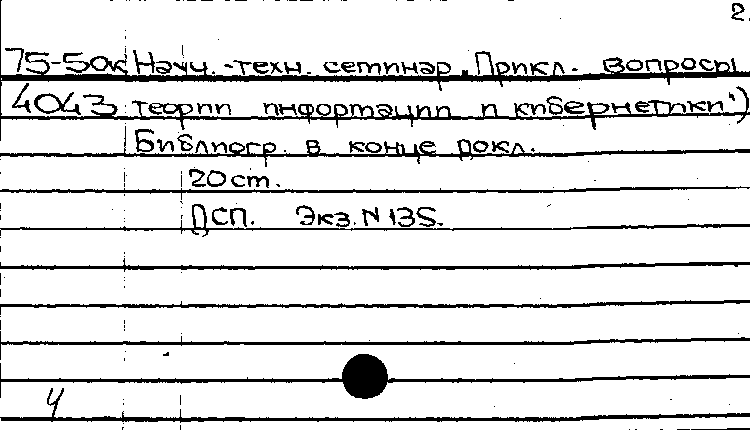 2.
75-50к Науч.-техн. семинар „Прикл. вопросы
4043 теории информации и кибернетики")
Библиогр. в конце докл.
20 см.
ДСП. Экз. N 135.
4